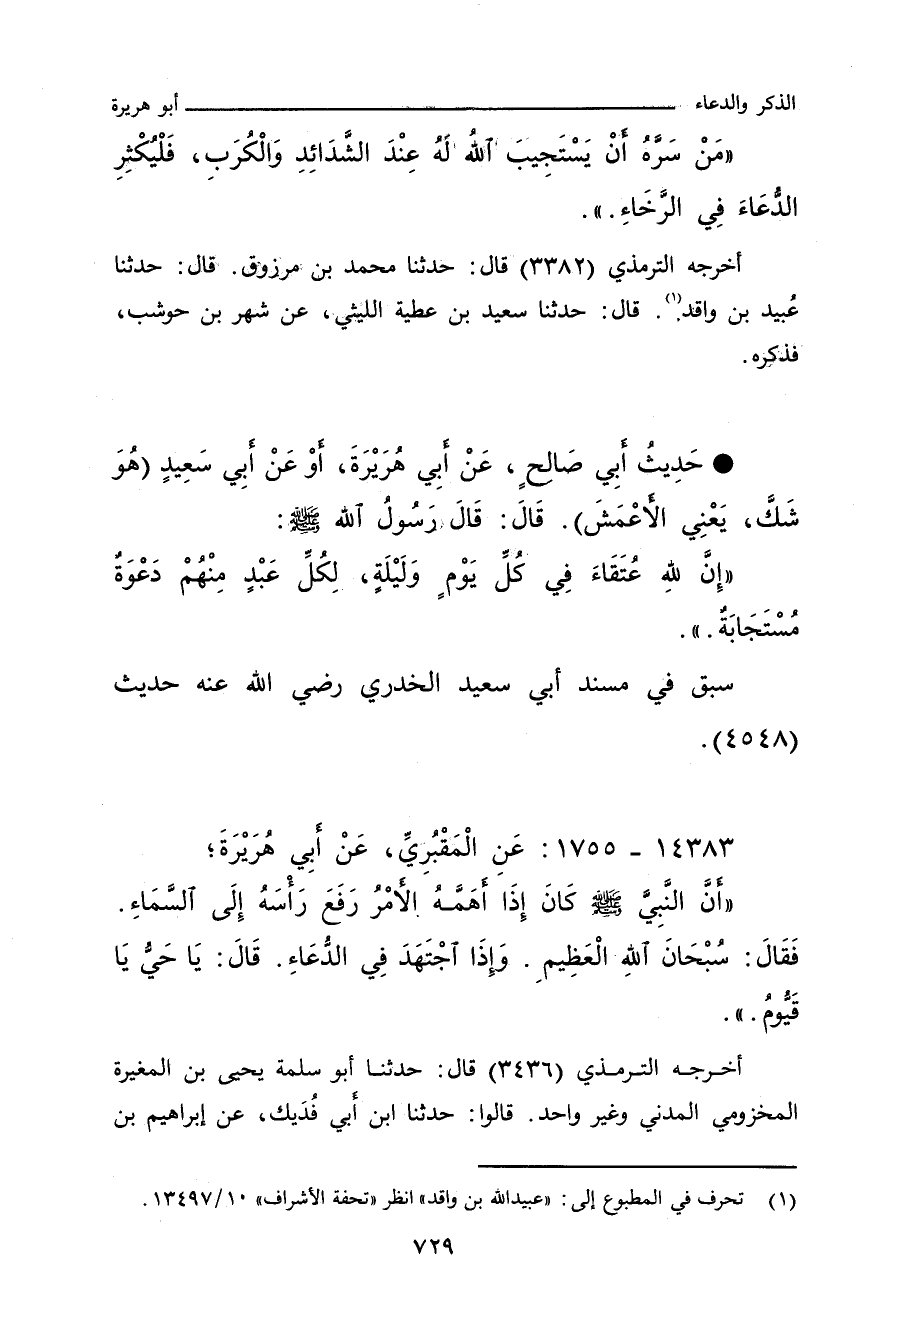 الذكر والدعاء ـــــــــــــــــ أبو هريرة
«مَنْ سَرَّهُ أَنْ يَسْتَجِيبَ ٱللهُ لَهُ عِنْدَ الشَّدَائِدِ وَالْكُرَبِ، فَلْيُكْثِرِ
الدُّعَاءَ فِي الرَّخَاءِ.».
أخرجه الترمذي (٣٣٨٢) قال: حدثنا محمد بن مرزوق. قال: حدثنا
عُبيد بن واقد(١). قال: حدثنا سعيد بن عطية الليثي، عن شهر بن حوشب،
فذكره.
● حَدِيثُ أَبِي صَالِحٍ، عَنْ أَبِي هُرَيْرَةَ، أَوْ عَنْ أَبِي سَعِيدٍ (هُوَ
شَكَّ، يَعْنِي الأَعْمَشَ). قَالَ: قَالَ رَسُولُ ٱلله ﷺ:
«إِنَّ للهِ عُتَقَاءَ فِي كُلِّ يَوْمٍ وَلَيْلَةٍ، لِكُلِّ عَبْدٍ مِنْهُمْ دَعْوَةٌ
مُسْتَجَابَةٌ.».
سبق في مسند أبي سعيد الخدري رضي الله عنه حديث
(٤٥٤٨).
١٤٣٨٣ - ١٧٥٥: عَنِ الْمَقْبُرِيِّ، عَنْ أَبِي هُرَيْرَةَ؛
«أَنَّ النَّبِيَّ ﷺ كَانَ إِذَا أَهَمَّهُ الأَمْرُ رَفَعَ رَأْسَهُ إِلَى ٱلسَّمَاءِ.
فَقَالَ: سُبْحَانَ ٱللهِ الْعَظِيمِ. وَإِذَا ٱجْتَهَدَ فِي الدُّعَاءِ. قَالَ: يَا حَيُّ يَا
قَيُّومُ.».
أخرجه الترمذي (٣٤٣٦) قال: حدثنا أبو سلمة يحيى بن المغيرة
المخزومي المدني وغير واحد. قالوا: حدثنا ابن أبي فُدَيك، عن إبراهيم بن
(١) تحرف في المطبوع إلى: «عبيدالله بن واقد» انظر «تحفة الأشراف» ١٣٤٩٧/١٠.
٧٢٩